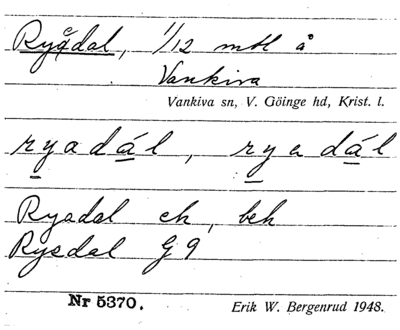 Ryådal, 1/12 mtl å
Vankiva
Vankiva sn, V. Göinge hd, Krist. l.
ryadál, ryadál
Ryadal ek, beh
Rysdal G 9
Nr 5370.
Erik W. Bergenrud 1948.